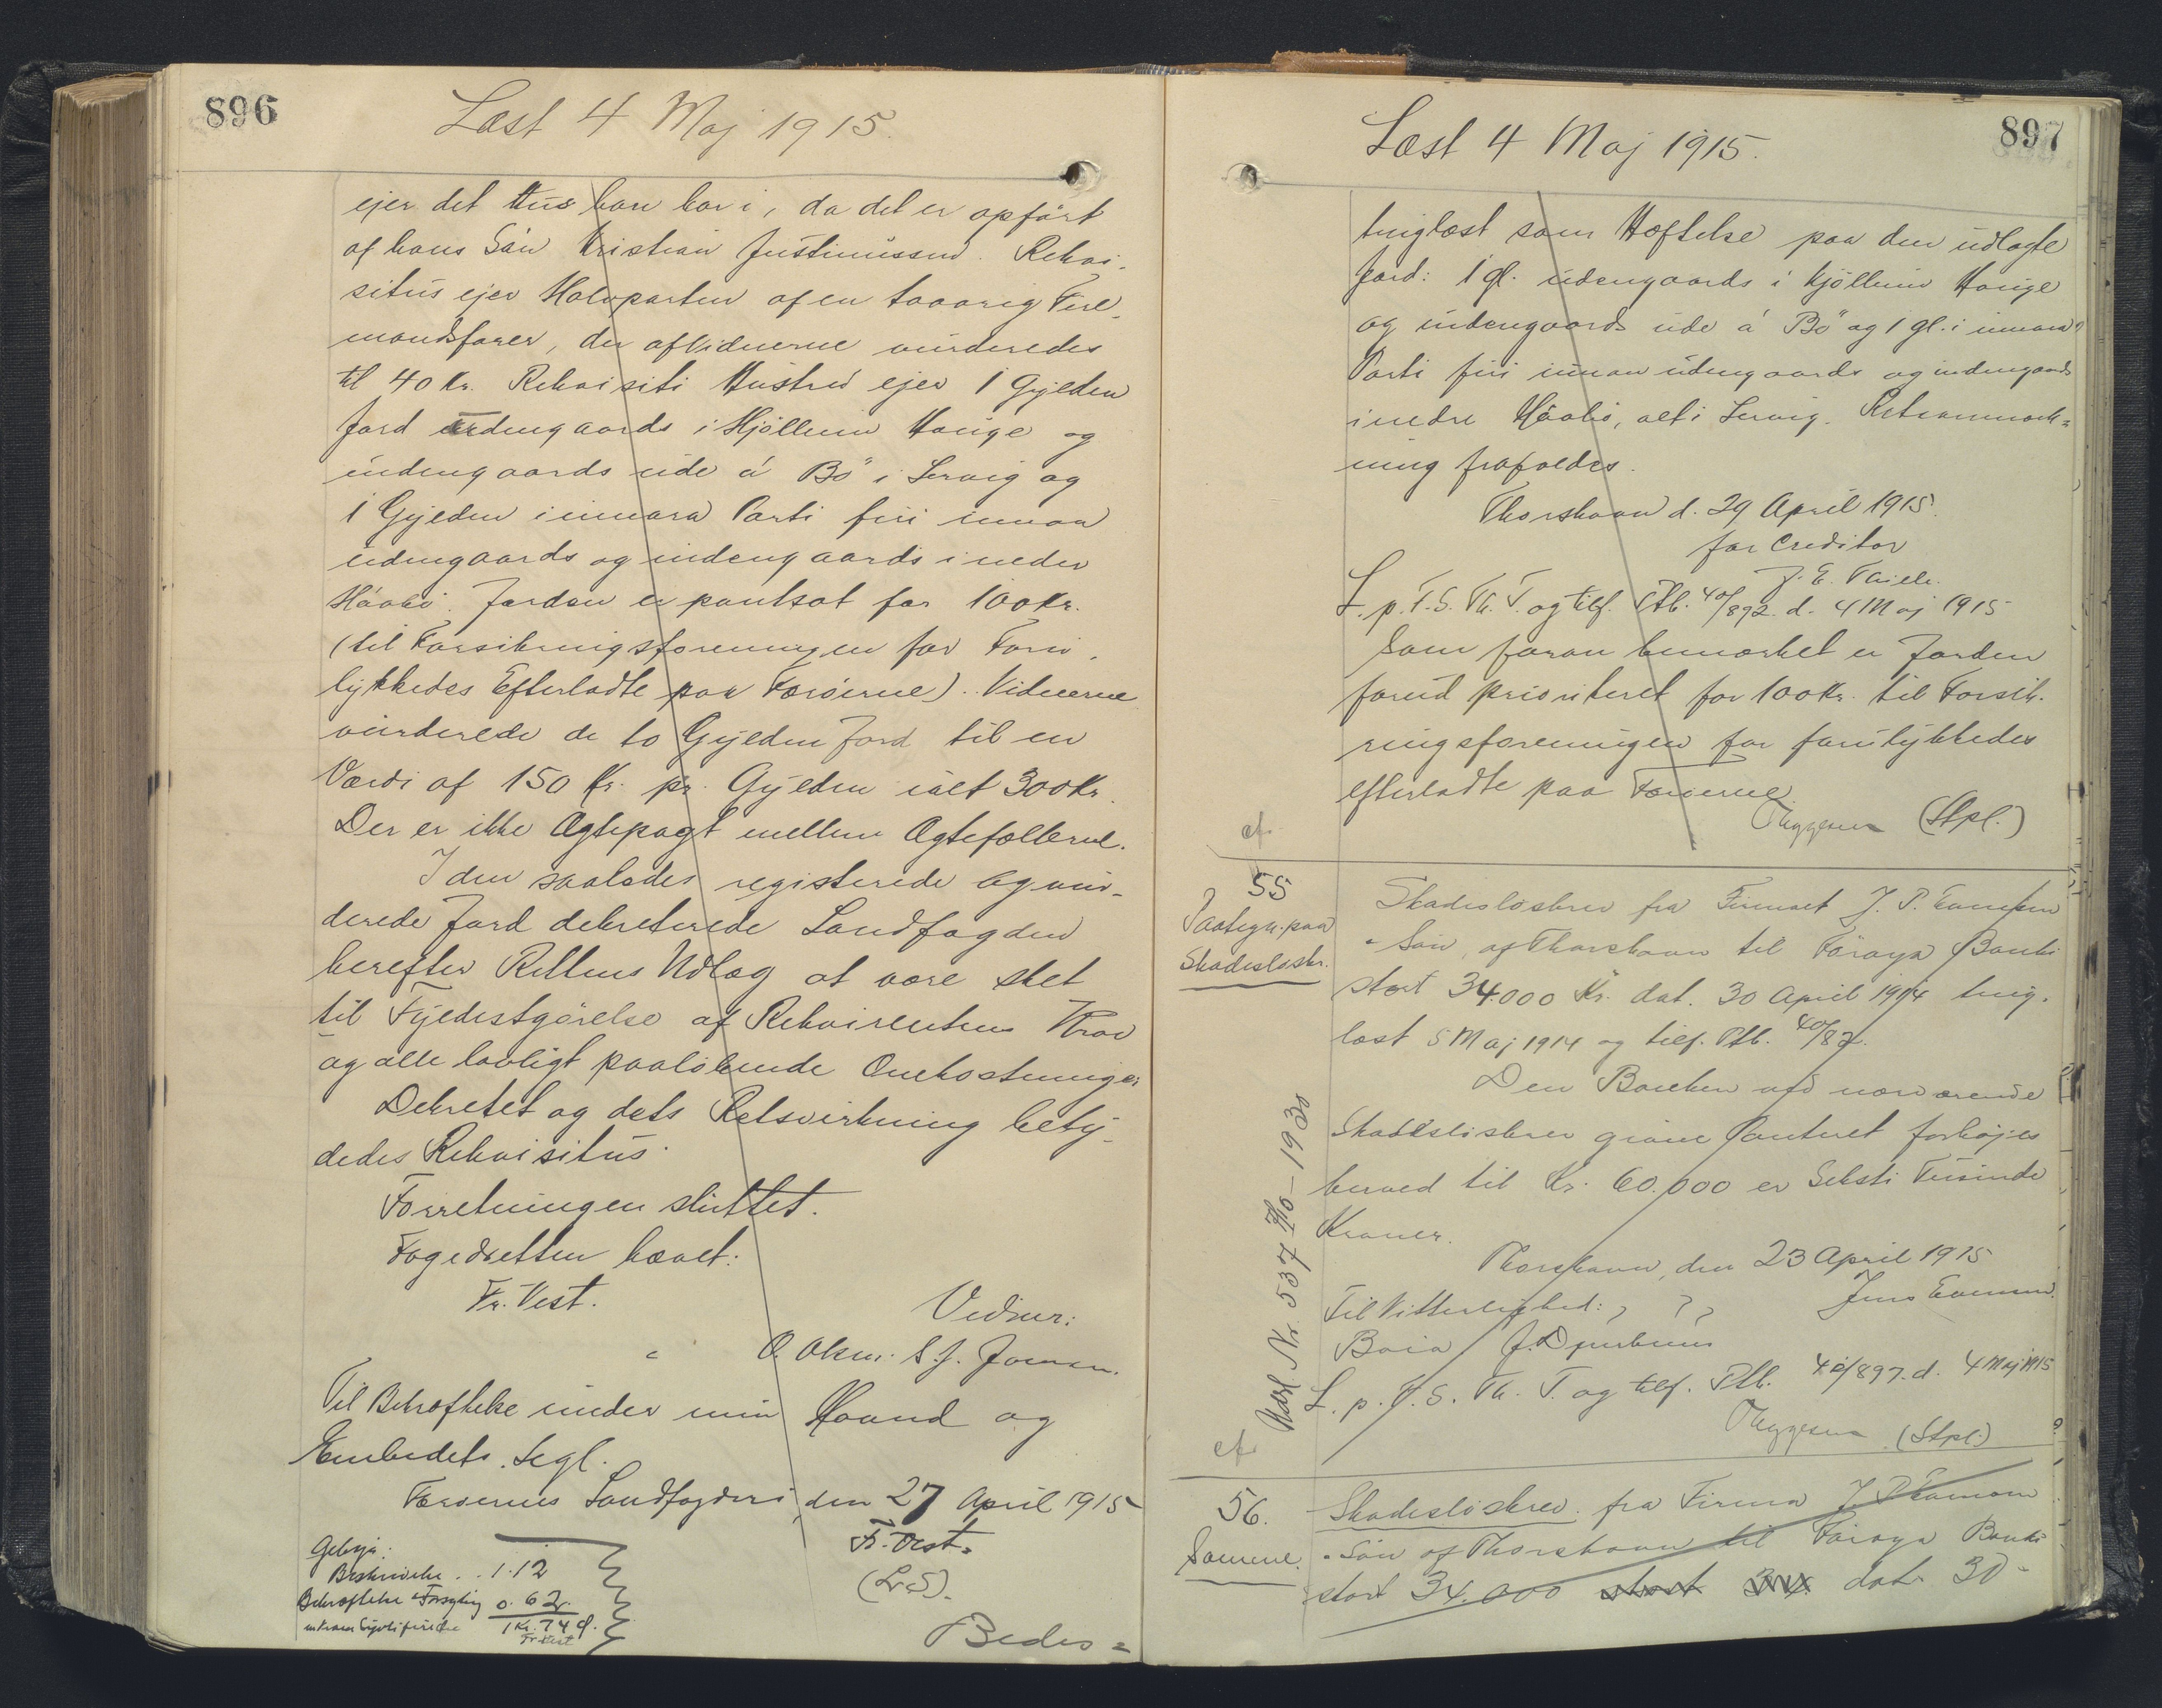 896
Læst 4 Maj 1915.
ejer det Hus han bor i, da det er opført
af hans Søn Kristian Justinussen. Rekvi-
situs ejer Halvparten af en toaarig Fire-
mandsfarer, der af Vidnerne vurderedes
til 40 Kr. Rekvisiti Hustru ejer 1 Gylden
Jord udengaards i Hjøllum Hauge og
indengaards ude á Bø i Lervig og
1 Gylden i innara Parti firi innan
udengaards og indengaards i nedre
Háabø. Jorden er pantsat for 100 Kr.
(til Forsikringsforeningen for Foru-
lykkedes Efterladte paa Færøerne). Vidnerne
vurderede de to Gylden Jord til en
Værdi af 150 Kr. pr. Gylden ialt 300 Kr.
Der er ikke Ægtepagt mellem Ægtefællerne.
I den saaledes registerede og vur-
derede Jord dekreterede Landfogden
herefter Rettens Udlæg at være sket
til Fyldestgørelse af Rekvirentens Krav
og alle lovligt paaløbende Omkostninger
Dekretet og dets Retsvirkning bety-
dedes Rekvisitus.
Forretningen sluttet.
Fogedretten hævet.
Fr. Vest.
Vidner:
O. Olsen. S. J. Joensen.
Til Bekræftelse under min Haand og
Embedets Segl.
Færøernes Landfogderi, den 27 April 1915
Fr. Vest.
(L.S).
Gebyr:
Beskrivelse . . 1.12
Bekræftelse & Forsegling 0.62.
1 Kr. 74 Ø.
Fr Vest
Bedes =
897
Læst 4 Maj 1915.
tinglæst som Hæftelse paa den udlagte
Jord: 1 gl. udengaards i Hjøllum Hauge
og indengaards ude á Bø og 1 gl. i innara
Parti firi innan udengaards og indengaards
i nedre Háabø, alt i Lervig. Retsanmærk=
ning frafaldes.
Thorshavn d. 29 April 1915.
for Creditor
J. E.
L. p. F. S. Th. T. og tilf. Ptb. 40/892. d. 4 Maj 1915
Som foran bemærket er Jorden
forud prioriteret for 100 Kr. til Forsik-
ringsforeningen for forulykkedes
efterladte paa Færøerne.
(Stpl.)
cf.
55
Paategn. paa
Skadesløsbr.
Skadesløsbrev fra Firmaet J. P. Evensen
" Søn, af Thorshavn til Føroya Banki
stort 34.000 Kr. dat. 30 April 1914 ting-
læst 5 Maj 1914 og tilf. Ptb. 40/87.
Den Banken ved nærværende
Skadesløsbrev givne Panteret forhøjes
herved til Kr. 60.000 er Seksti Tusinde
Kroner.
Thorshavn, den 23 April 1915
Jens Evensen.
Til Vitterlighed:
J. Djurhuus
L. p. F. S. Th. T. og tilf. Ptb. 40/897. d. 4 Maj 1915
(Stpl.)
Nr. 537 1930
cf.
56.
Samme.
Skadesløsbrev fra Firma J. P. Evensen
" Søn af Thorshavn til Føroya Banki
stort 34.000 stort dat. 30